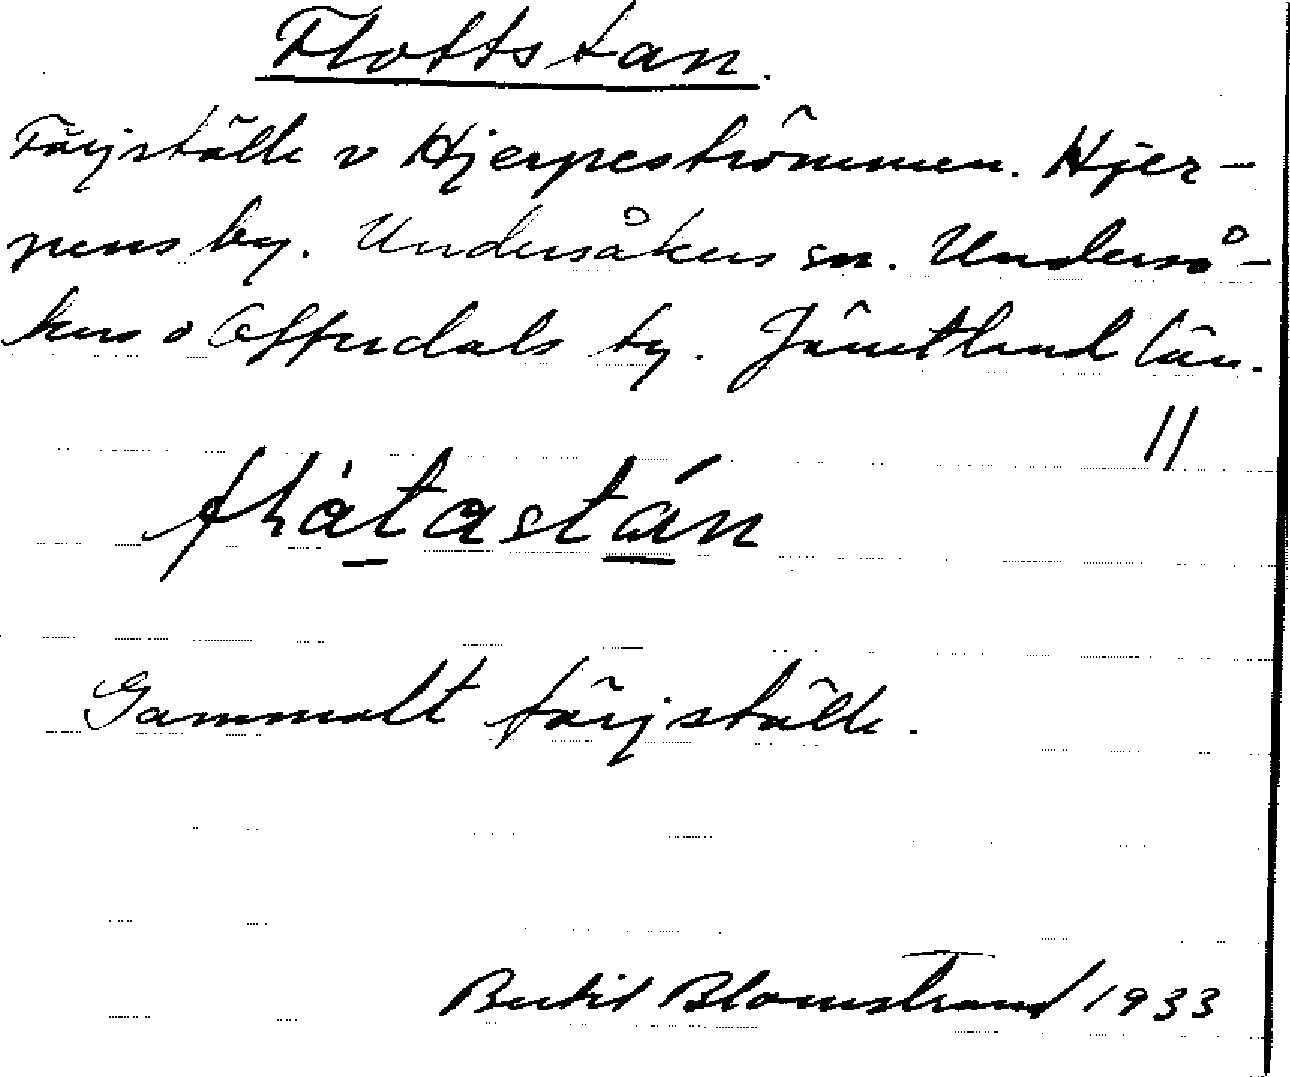 Flottstan.
Färjställe v Hjerpeströmmen. Hjer-
pens by. Undersåkers sn. Underså-
kers o Offerdals tg. Jämtland län.
11
flàtastán
Gammalt färjställe.
Bertil Blomstrand 1933